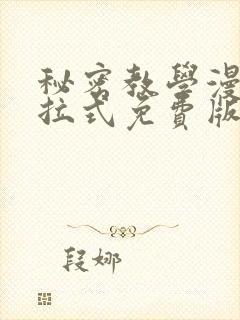 秘密教學漫
拉式免費版
段娜